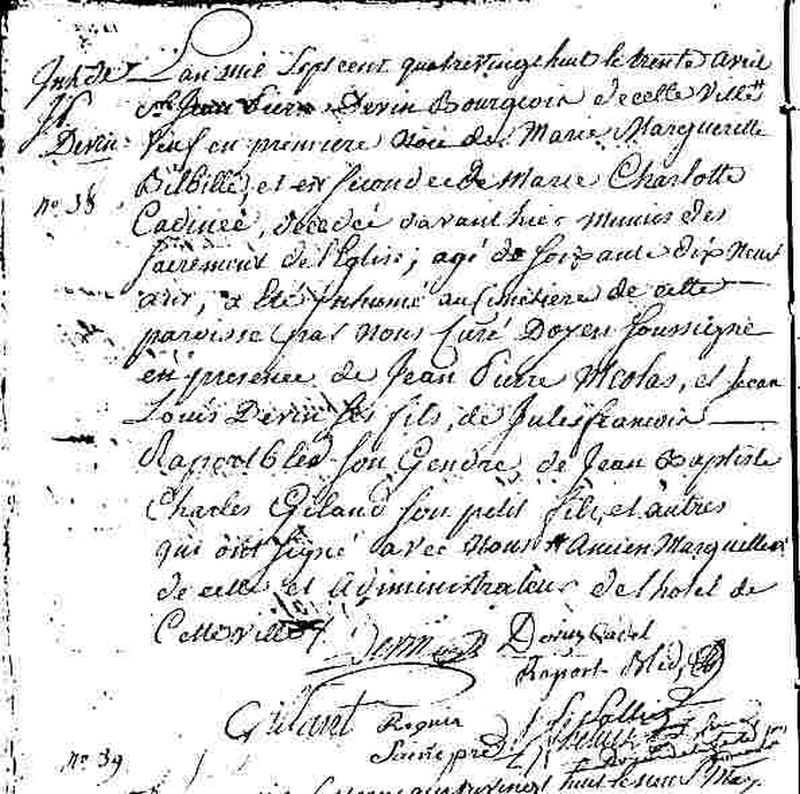 L'an mil sept cent quatrevingt huit le trente avril
Inh de
Sr Jean Pierre Devin Bourgeois de cette Ville #
Jh.
Devin
Veuf en premiere Noce de Marie Marguerelle
Bilbille, et en seconde de Marie Charlotte
no 38
Cadinée, decedé davanthier munies des
sacremens de l'Eglise; agé de soixante dix neuf
ans, a été inhumé au Cimetiere de cette
paroisse par nous Curé Doyen soussigné
en presence de Jean Pierre Nicolas, et Jean
Louis Devin ses fils, de Jules francois
Raport Bled son Gendre, de Jean Baptiste
Charles Giland son petit fils, et autres
qui ont signé avec nous # Ancien Marguillier
de celle et Administrateur de l'hotel de
Cette ville
Devin Devin Cadet
Raport Bled
Gillant
no 39
huit le